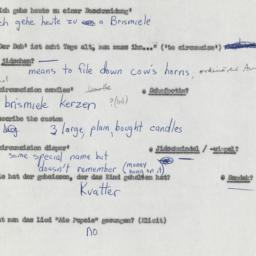 Ich gehe heute zu einer Beschneidung"
ich gehe heute zu a Brismiele
Der Bub' ist acht Tage alt, nun muss ihn..." ('to circumcise')
jüdschen?
means to file down cow's horns,
circumcision candles
Schofootim?
brismiele kerzen ?(sb)
describe the custom
3 large, plain, bought candles
circumcision diaper
Jüdschwindel / -wimpel?
some special name but
doesn't remember (money
hung on it)
wie hat der geheissen, der das Kind gehalten hat?
Kvatter
Sandek?
hat man das Lied "Die Pupele" gesungen? (Elicit)
no